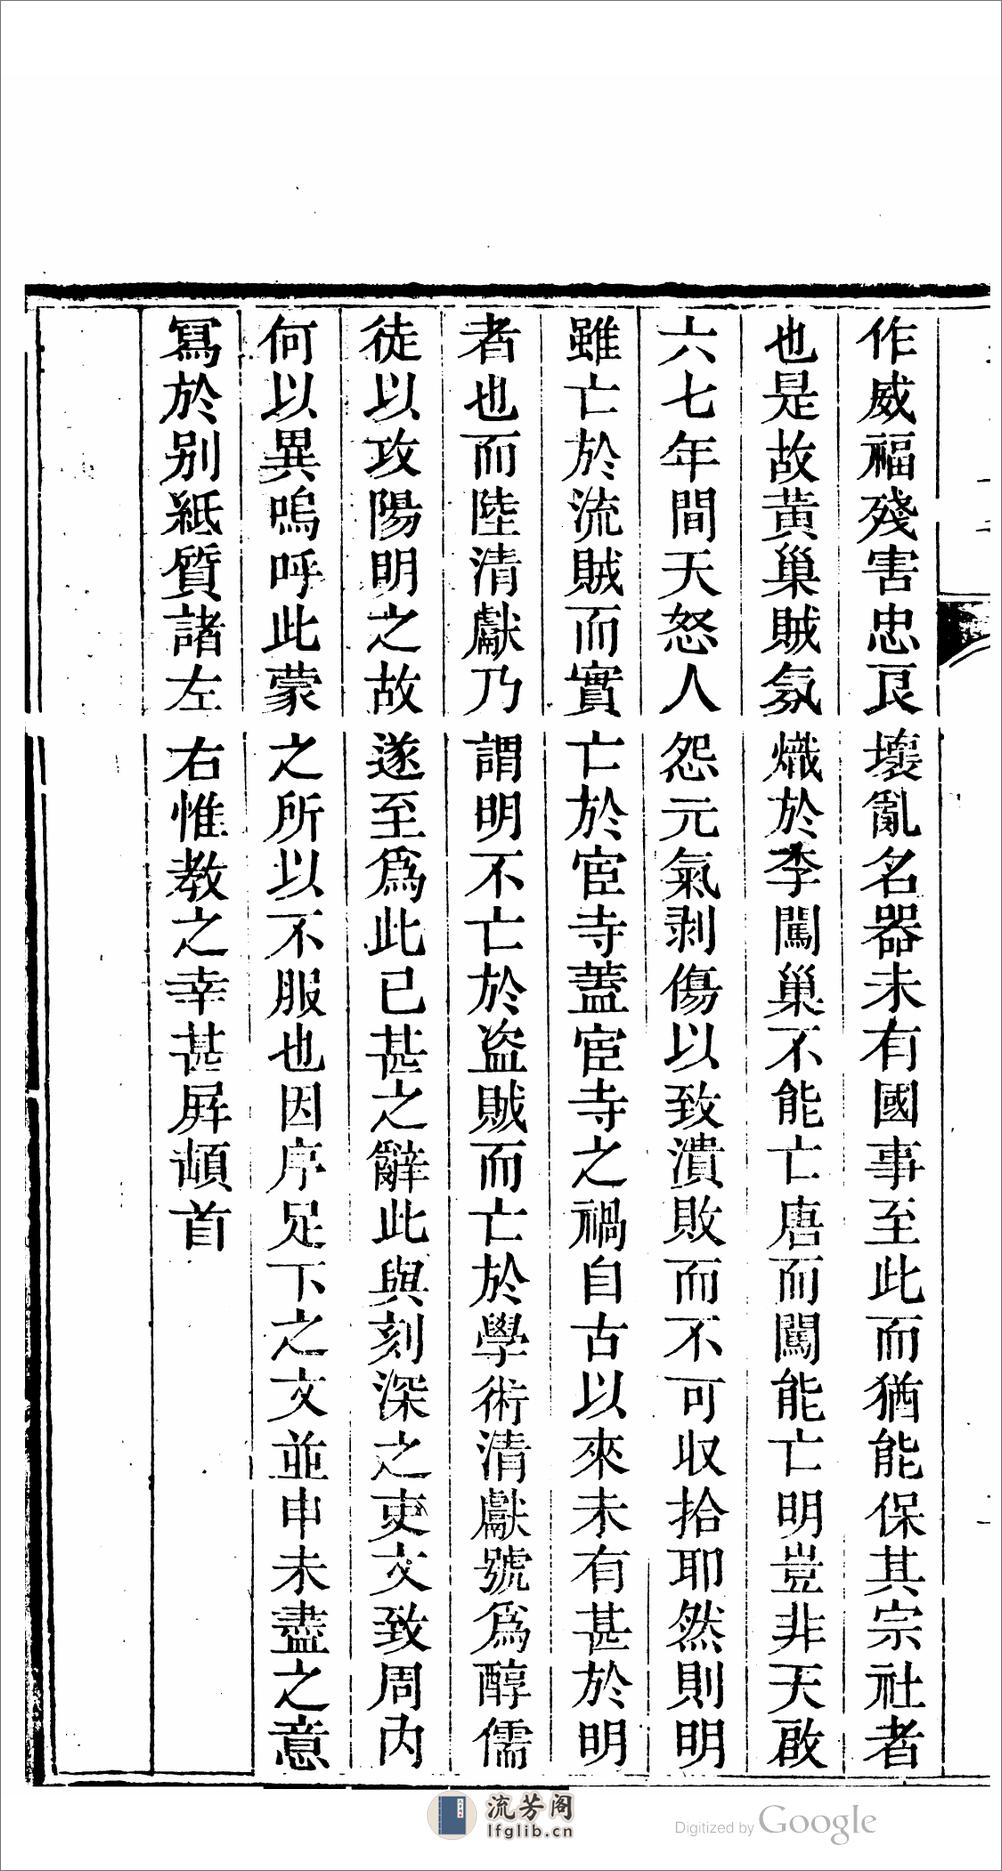 作威福殘害忠良壞亂名器未有國事至此而猶能保其宗社者
也是故黃巢賊氛熾於李闖巢不能亡唐而闖能亡明豈非天啟
六七年間天怒人怨元氣剥傷以致潰敗而不可収拾耶然則明
雖亡於流賊而實亡於宦寺蓋宦寺之禍自古以來未有甚於明
者也而陸清獻乃謂明不亡於盗賊而亡於學術清獻號爲醇儒
徒以攻陽明之故遂至爲此已甚之辭此與刻深之吏文致周内
何以異嗚呼此蒙之所以不服也因序足下之文並申未盡之意
寫於别紙質諸左右惟教之幸甚屛頓首
流芳阁
lfglib.cn
Digitized by Google